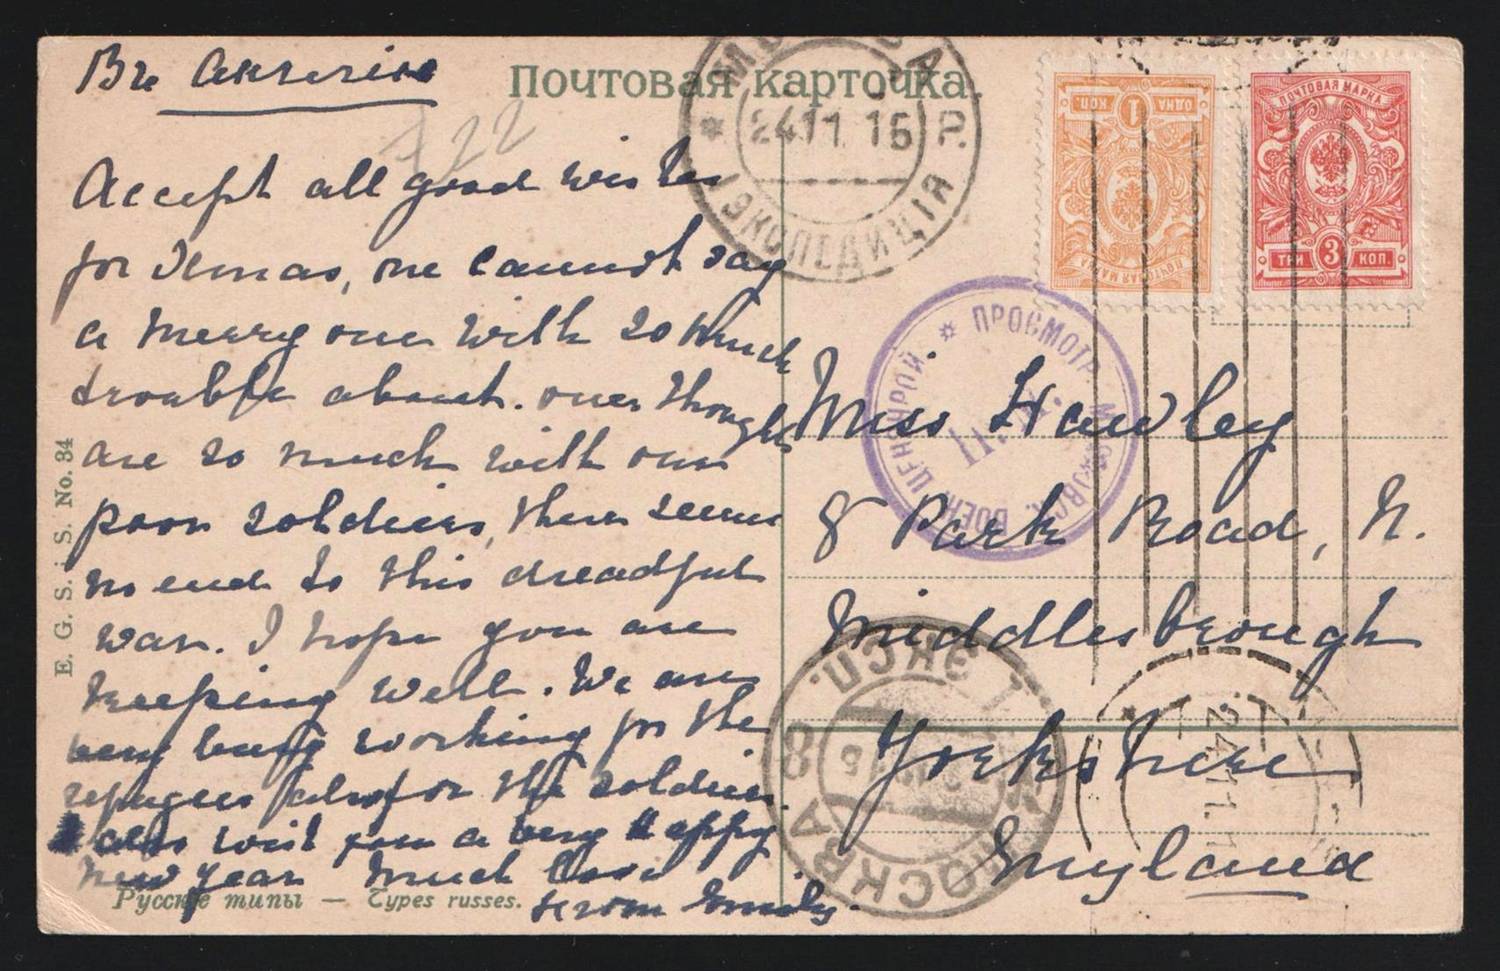 Почтовая карточка.
Accept all good wishes
for Xmas, one cannot say
a merry one with so much
trouble about. our thoughts
are so much with our
poor soldiers, there seems
no end to this dreadful
war. I hope you are
keeping well. We are
very busy working for the
refugees also for the soldiers
also wish you a very Happy
New Year Much Love
from Emily.
Miss Hawley
8 Park Road, N.
Middlesbrough
Yorkshire
England
E. G. S. i. S. No. 34
Русскіе типы — Types russes.
ОДНА 1 КОП.
ПОЧТОВАЯ МАРКА
ПОЧТОВАЯ МАРКА
ТРИ 3 КОП.
24.11.15
ЭКСПЕДИЦІЯ
ПРОСМОТР. МОСКОВСК. ВОЕН. ЦЕНЗУРОЙ.
МОСКВА
8
1 ЭКСП.
24.11.1
722